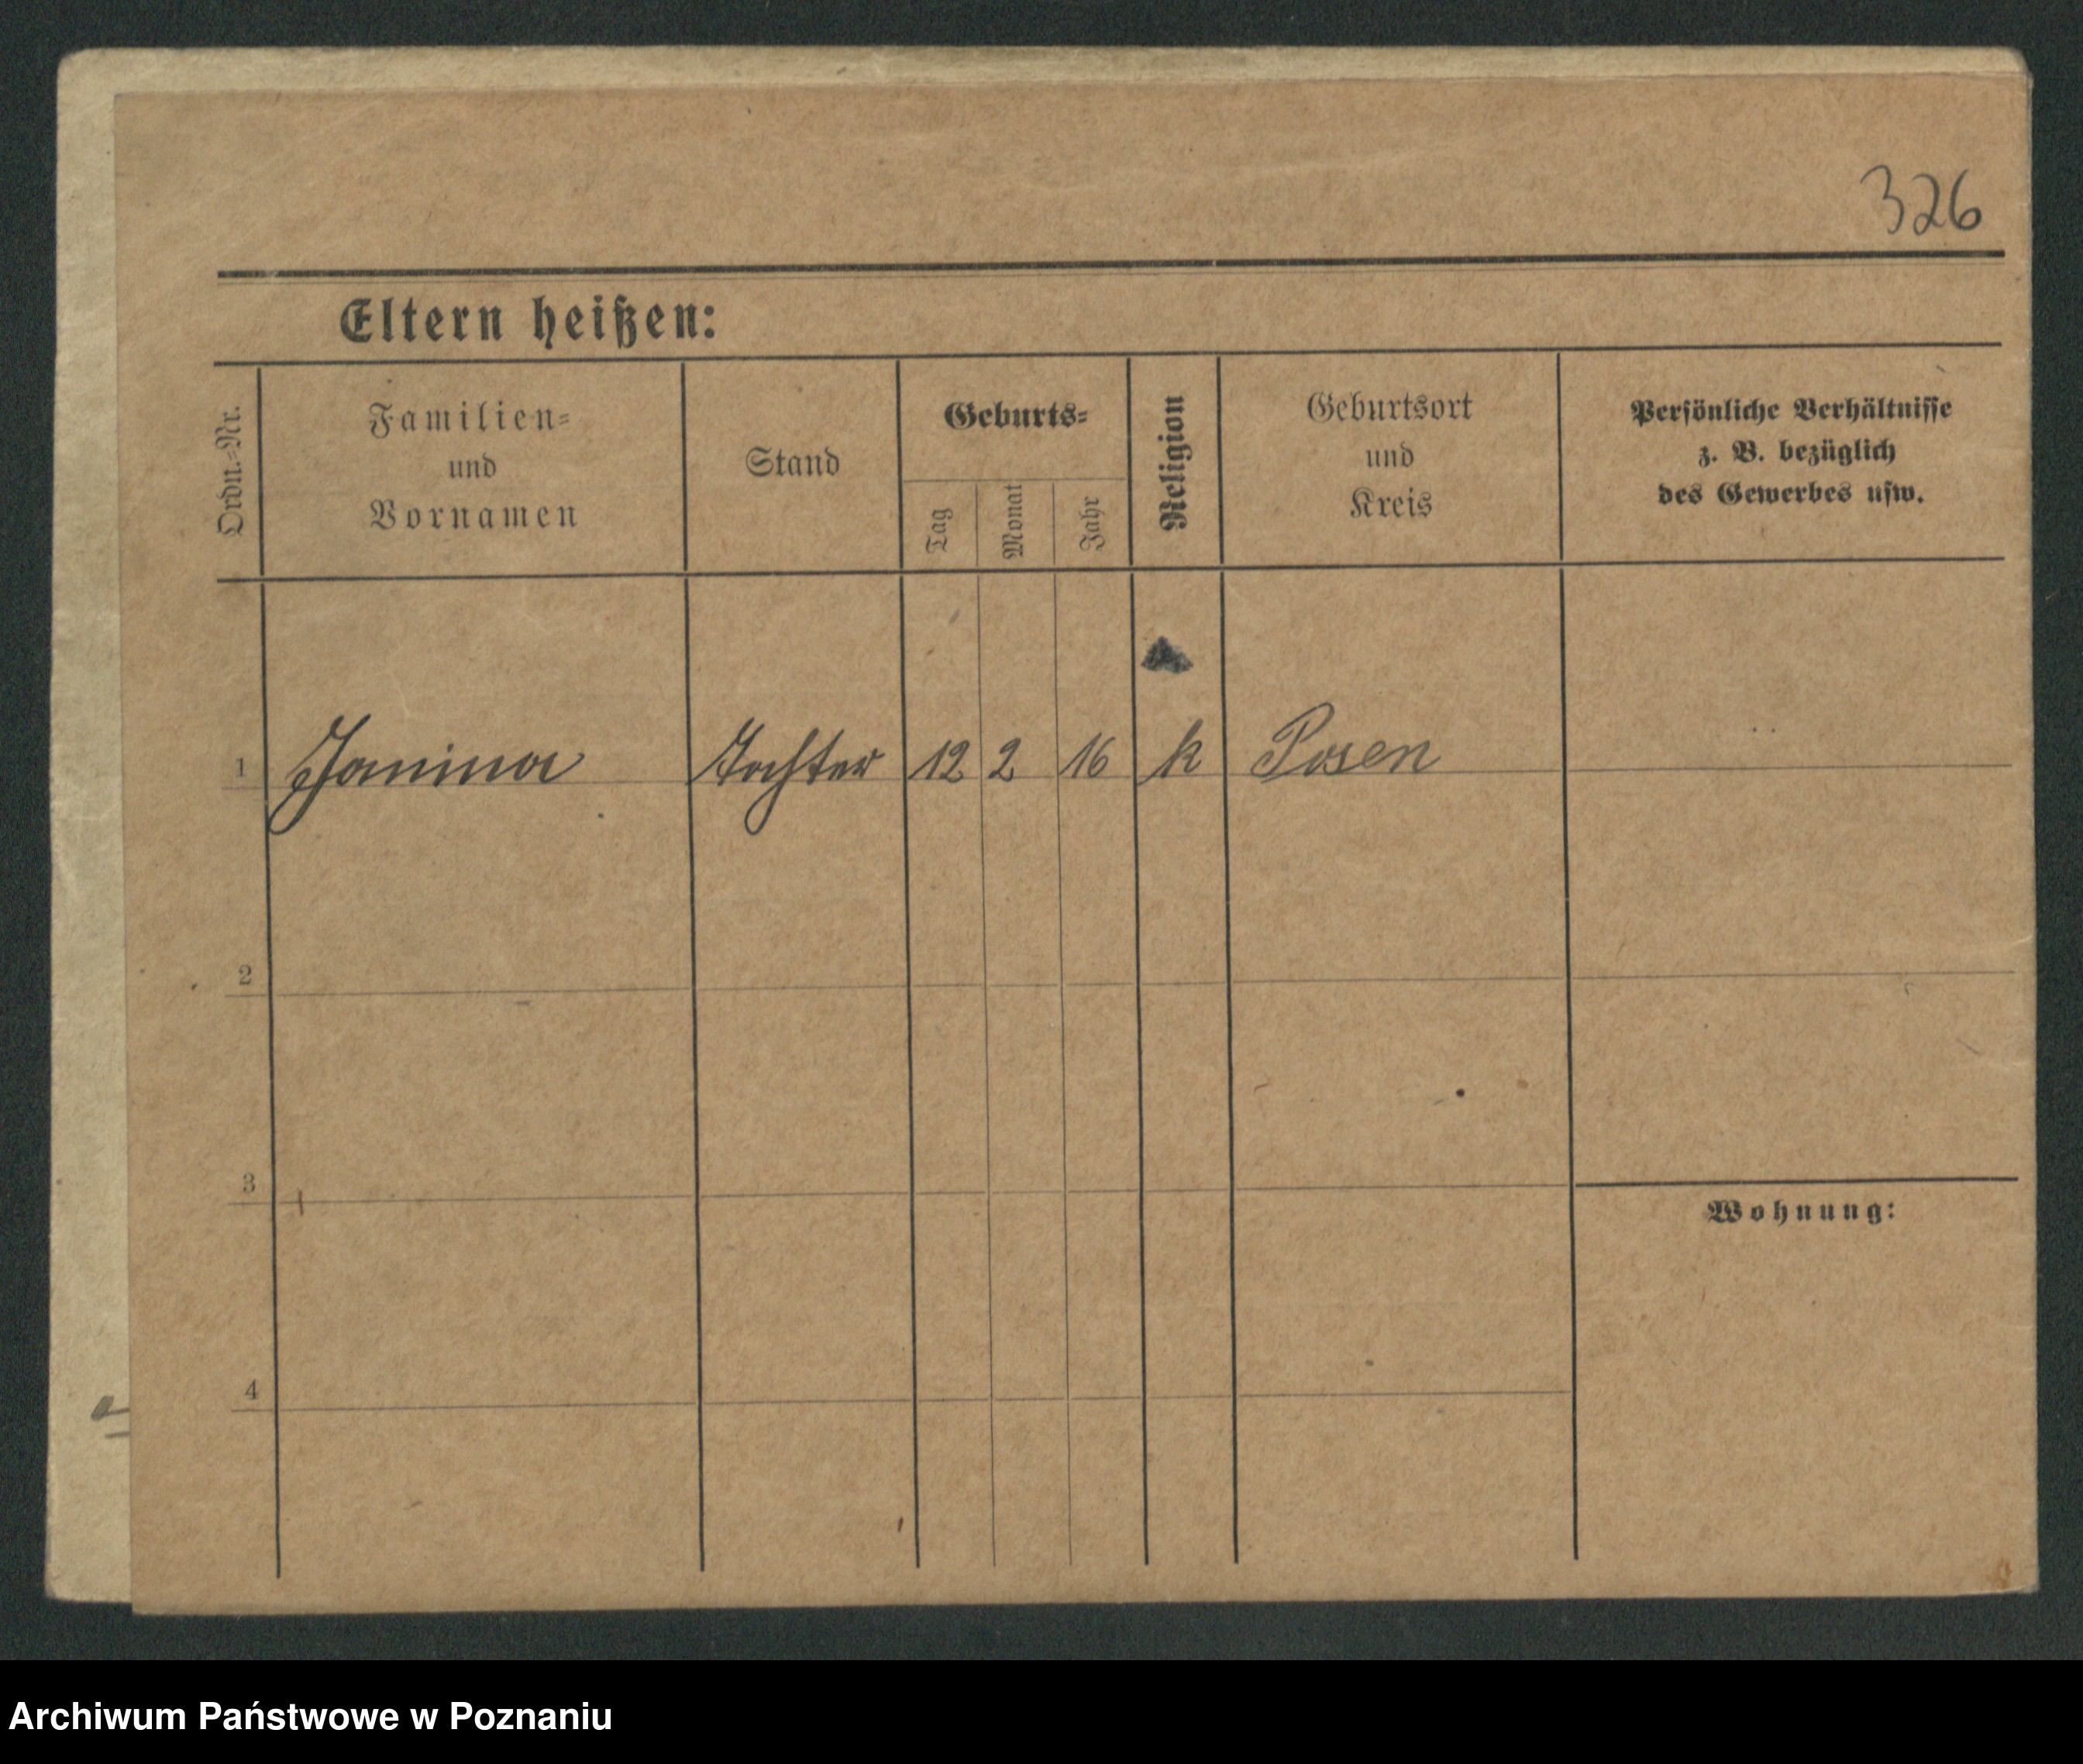 326
Eltern heißen:
Ordn.=Nr.
Familien=
und
Vornamen
Stand
Geburts=
Tag
Monat
Jahr
Religion
Geburtsort
und
Kreis
Persönliche Verhältnisse
z. B. bezüglich
des Gewerbes usw.
1 Janina Tochter 12 2 16 k Posen
2
3
Wohnung:
4
Archiwum Państwowe w Poznaniu